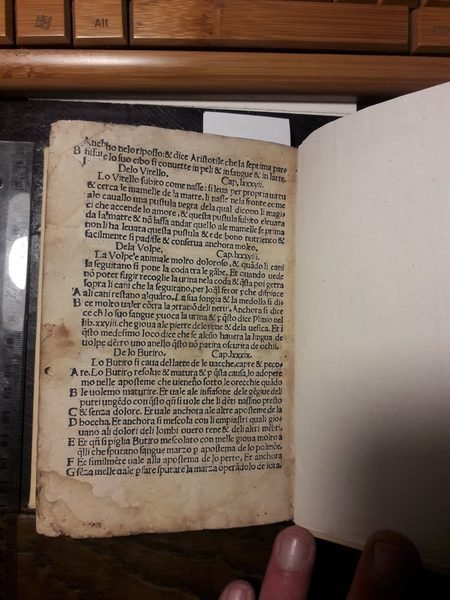 Alt
Anchho nelo riposso: & dice Aristotile che la septima par-
B lo suo cibo si conuerte in peli & in sangue & in latte.
Delo Vitello. Cap. lxxxvii.
Lo Vitello subito come nasse: si leua per propria uirtu
& cerca le mamelle de la matre. li nasse nela fronte come
alo cauallo una pustula negra dela qual dicono li magi-
ci che accende lo amore, & questa pustula subito eleuata
da la matre & nō lassa andar quello ale mamelle se prima
non li ha leuata questa pustula & e de bono nutriento &
facilmente si padisse & conserua anchora molto.
Dela Volpe. Cap. lxxxviii.
La Volpe e animale molto doloroso, & quādo li cani
la seguitano si pone la coda tra le gābe. Et quando uede
nō poter fugir recoglie la urina nela coda & q̄sta poi getta
sopra li cani che la seguitano, per lo q̄l fetor che dispiace
A ali cani restano alquāto. La sua songia & la medolla si di-
B ce molto ualer cōtra la de neri. Anchora si dice
ce ch lo suo sangue puoca la urina & p q̄sto dice Plinio nel
lib. xxviii. che gioua ale pietre dele rene & dela uesica. Et i
q̄sto medesimo loco dice che se alcūo hauera la lingua de
uolpe dētro uno anello q̄sto nō patira oscurita de ochii.
De lo Butiro. Cap. lxxxix.
Lo Butiro si caua del latte de le uacche, capre & peco-
A re. Lo Butiro resolue & matura & p q̄sta causa, lo adopera
mo nelle aposteme che uieneno sotto le orechie quādo
B le uolemo maturire. Et uale ale infusione dele gēgiue deli
putti ungēdo con q̄sto q̄n si uole che li dēti nassino presto
C & senza dolore. Et uale anchora ale altre aposteme de la
D boccha. Et anchora si mescola con li empiastri quali gio-
uano ali dolori deli lombi ouero rene & deli altri mēbri.
E Et q̄n si piglia Butiro mescolato con melle gioua molto a
q̄lli che sputano sangue marzo p apostema de lo polmōe.
F Et similmēte uale alla apostema de lo petto. Et anchora
G sēza melle uale p fare sputare la marza operādolo de fora.